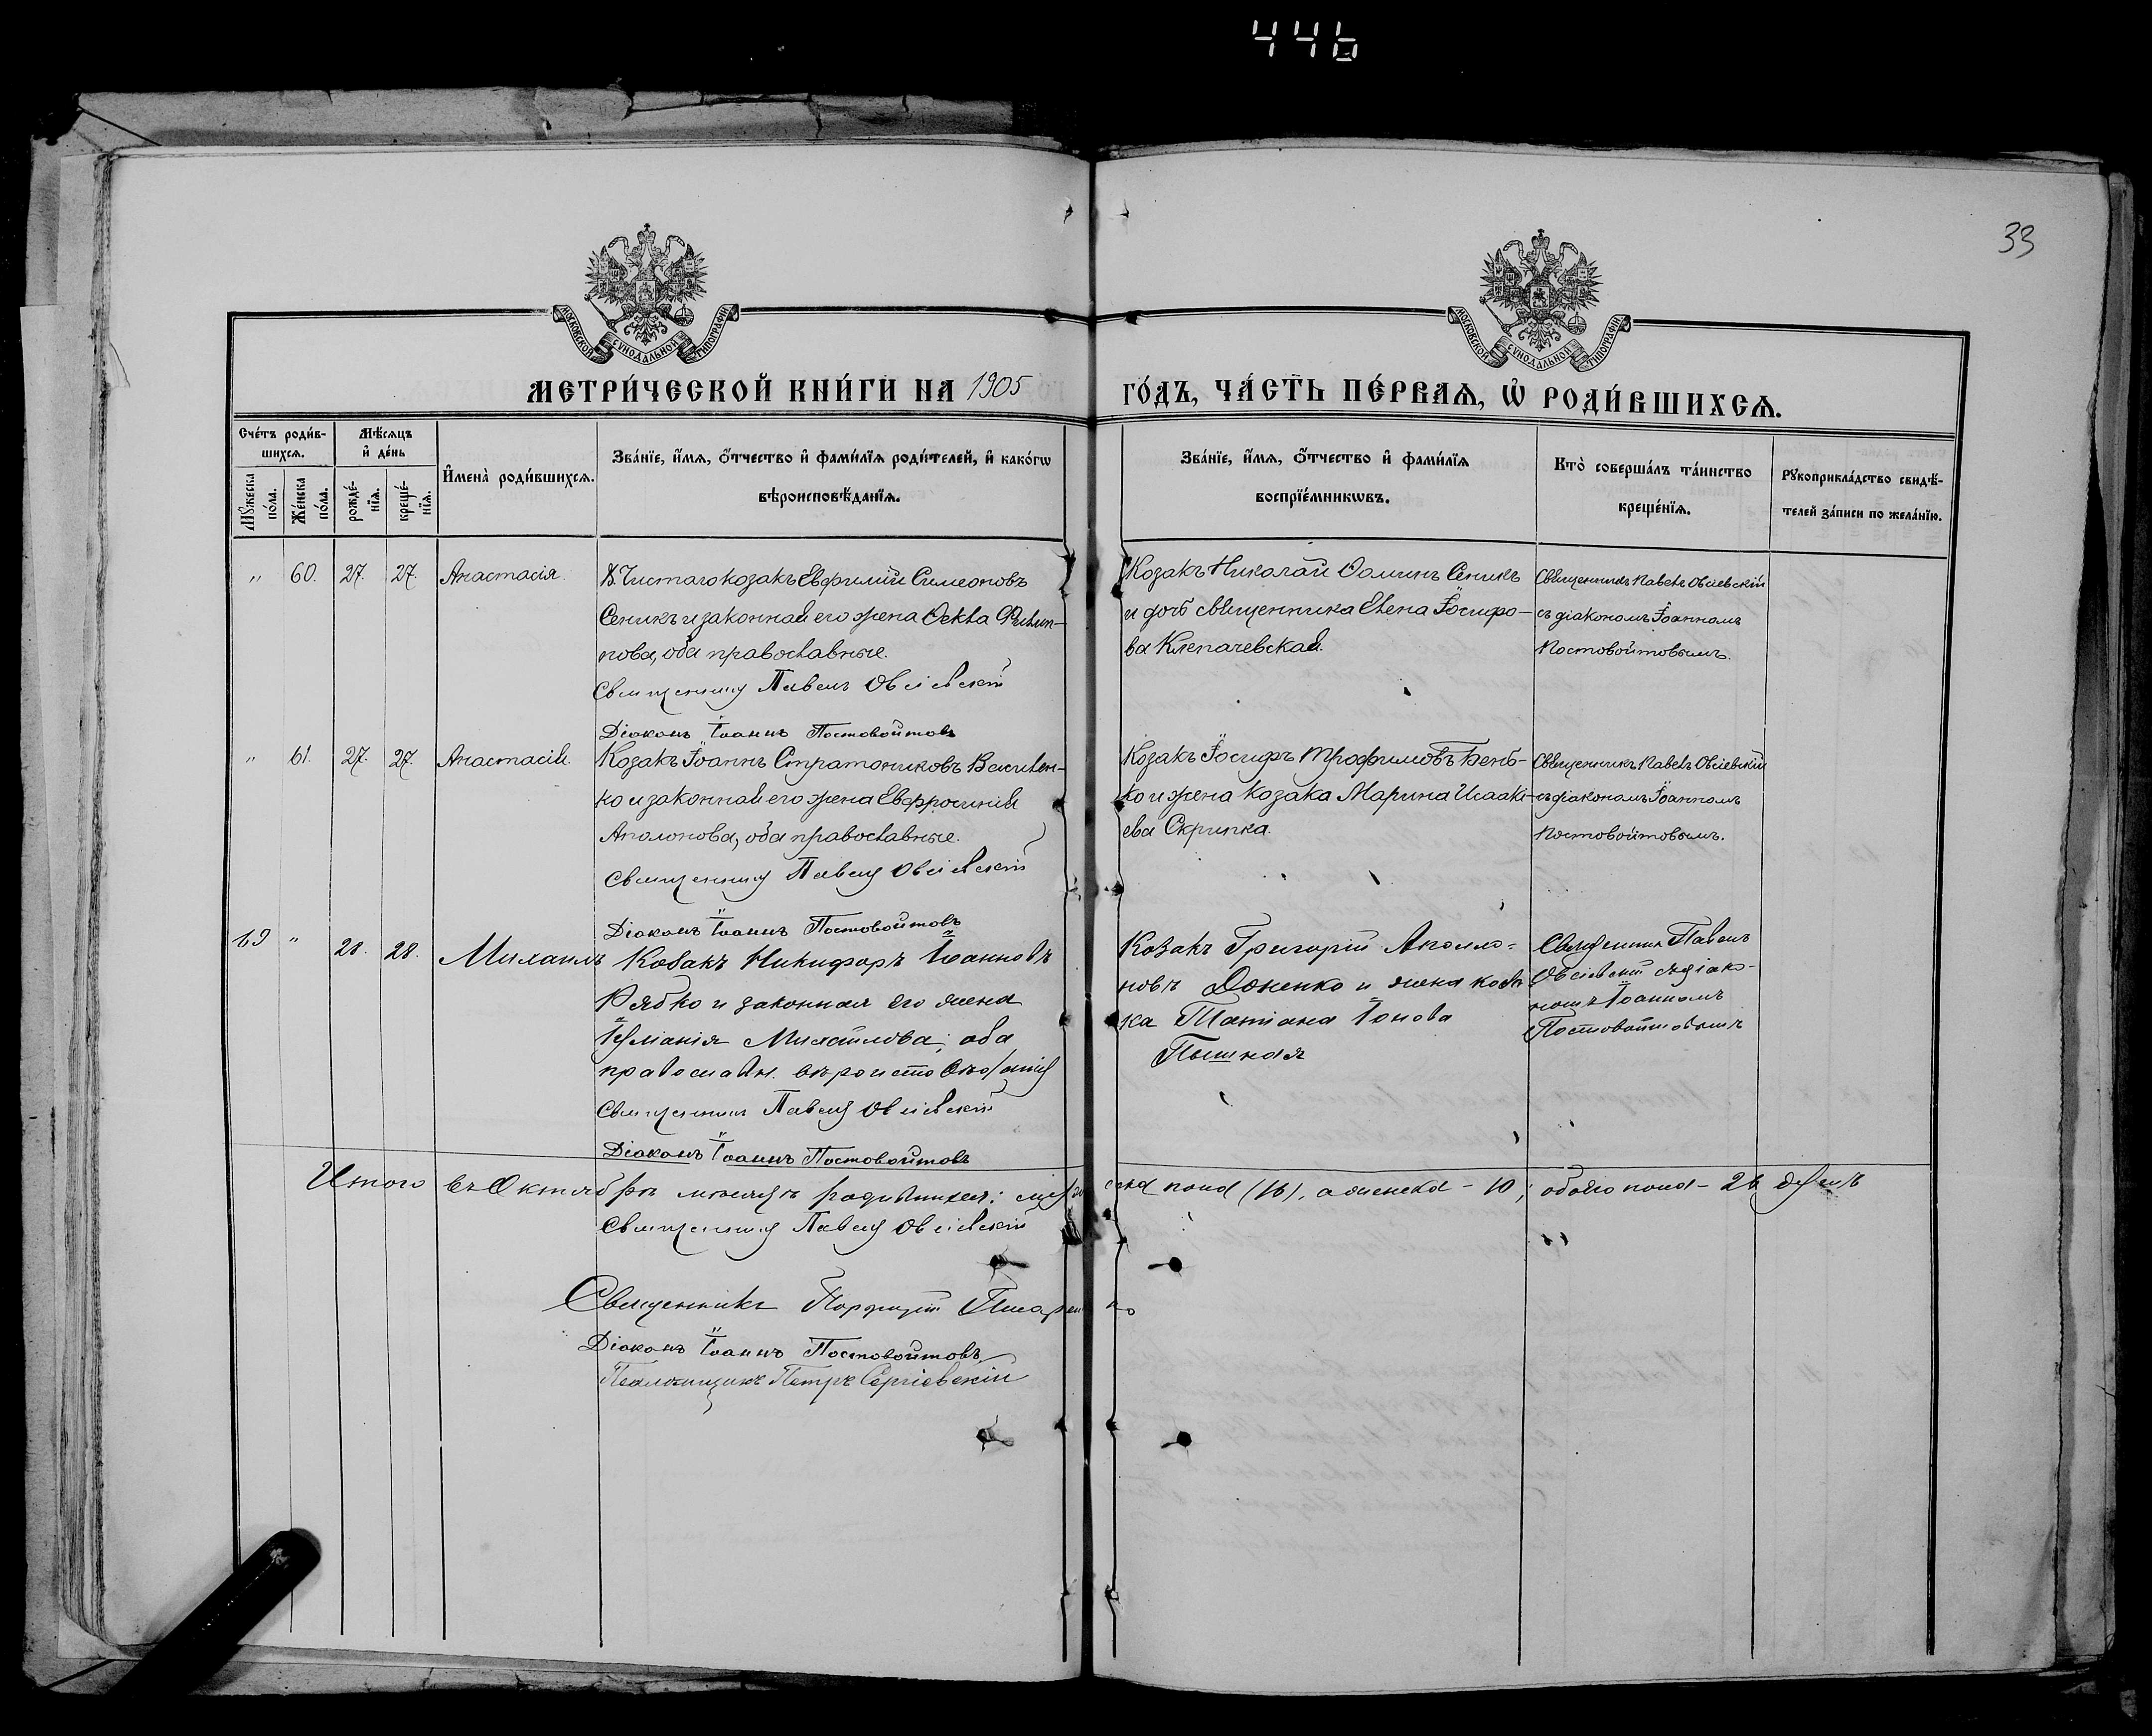 446
33
МОСКОВСКОЙ СѴНОДАЛЬНОЙ ТИПОГРАФІИ
МОСКОВСКОЙ СѴНОДАЛЬНОЙ ТИПОГРАФІИ
МЕТРИ́ЧЕСКОЙ КНИ́ГИ НА 1905 ГО́ДЪ, ЧА́СТЬ ПЕ́РВАѦ, Ѡ҆ РОДИ́ВШИХСѦ.
Сче́тъ роди́вшихсѧ.
Мꙋ́жеска по́ла.
Же́нска по́ла.
Мѣ́сѧцъ и҆ де́нь
рожде́нїѧ.
креще́нїѧ.
И҆мена̀ роди́вшихсѧ.
Зва́нїе, и҆́мѧ, ѻ҆́тчество и҆ фами́лїѧ роди́телей, и҆ како́гѡ
вѣроисповѣ́данїѧ.
Зва́нїе, и҆́мѧ, ѻ҆́тчество и҆ фами́лїѧ
воспрїе́мникѡвъ.
Кто̀ соверша́лъ та́инство
креще́нїѧ.
Рꙋкоприкла́дство свидѣ́-
телей за́писи по жела́нїю.
" 60. 27. 27. Анастасія.
Чистаго козакъ Евфимій Симеоновъ
Сеникъ и законная его жена Ѳекла Филип-
пова, оба православные.
Священникъ Павелъ Овсіевскій
Діаконъ Іоаннъ Постовойтовъ
Козакъ Николай Ѳоминъ Сеникъ
и дочь священника Елена Іосифо-
ва Клепачевская.
Священникъ Павелъ Овсіевскій
съ діакономъ Іоанномъ
Постовойтовымъ.
" 61. 27. 27. Анастасія.
Козакъ Іоаннъ Стратониковъ Василен-
ко и законная его жена Евфросинія
Аполонова, оба православные.
Священникъ Павелъ Овсіевскій
Діаконъ Іоаннъ Постовойтовъ
Козакъ Іосифъ Трофимовъ Бень-
ко и жена козака Марина Исааки-
ева Скрипка.
Священникъ Павелъ Овсіевскій
съ діакономъ Іоанномъ
Постовойтовымъ.
69 " 28. 28. Михаилъ
Козакъ Никифоръ Іоанновъ
Рябко и законная его жена
Іуліанія Михайлова, оба
православн. вѣроисповѣданія
Священникъ Павелъ Овсіевскій
Діаконъ Іоаннъ Постовойтовъ
Козакъ Григорій Аполло-
новъ Доненко и жена коза-
ка Татіана Іонова
Пышная
Священникъ Павелъ
Овсіевскій съ діако-
номъ Іоанномъ
Постовойтовымъ
Итого въ Октябрѣ мѣсяцѣ родившихся: мужеска пола (16), а женска - 10; обоего пола - 26 душъ
Священникъ Павелъ Овсіевскій
Священникъ Порфирій Писаренко
Діаконъ Іоаннъ Постовойтовъ
Псаломщикъ Петръ Сергіевскій